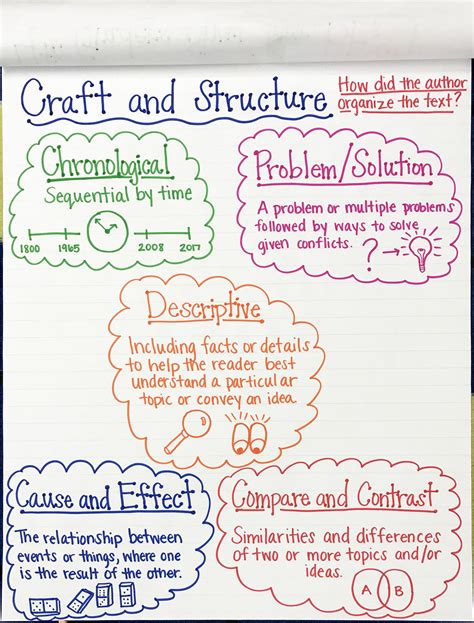 Craft and Structure
How did the author
organize the text?
Chronological
Sequential by time
1800 1965 2008 2017
Problem/Solution
A problem or multiple problems
followed by ways to solve
given conflicts.
?
Descriptive
Including facts or details
to help the reader best
understand a particular
topic or convey an idea.
Cause and Effect
The relationship between
events or things, where one
is the result of the other.
Compare and Contrast
Similarities and differences
of two or more topics and/or
ideas.
A B